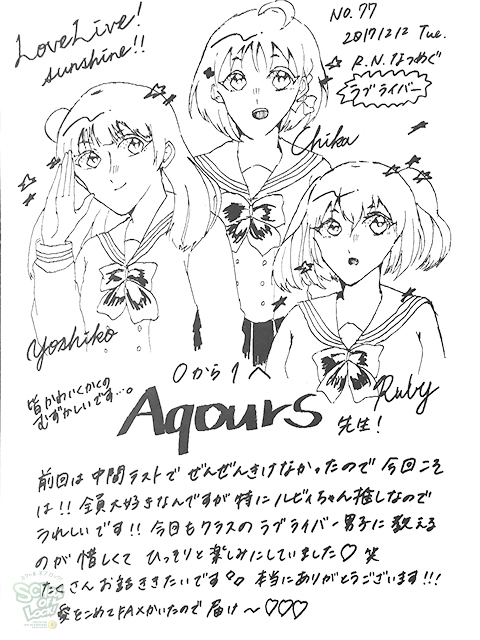 LoveLive!
sunshine!!
NO.77
2017/12/12 Tue.
R.N.なつめぐ
ラブライバー
Chika
Yoshiko
Ruby
0から1へ
皆かわいくかくの
むずかしいです…。
Aqours
先生!
前回は中間テストでぜんぜんきけなかったので今回こそ
は!!全員大好きなんですが特にルビィちゃん推しなので
うれしいです!!今日もクラスのラブライバー男子に教える
のが惜しくてひっそりと楽しみにしていました♡笑
たくさんお話ききたいです。本当にありがとうございます!!!
愛をこめてFAXかいたので届け〜♡♡♡
SCHOOL OF LOCK!